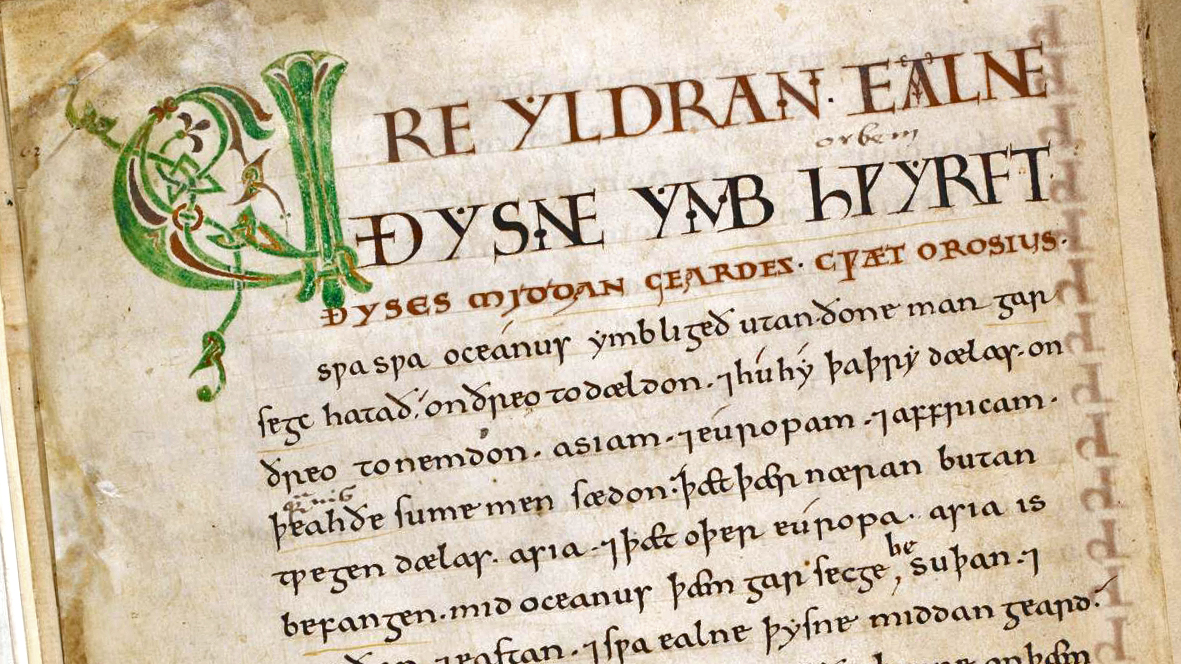 URE ẎLDRAN· EALNE
orbem
ÐẎSNE ẎMB HǷẎRFT
ÐYSES MIDDAN GEARDES· CǷÆT OROSIUS·
sƿa sƿa océanus ẏmbligeð utan· ðone man gar
segc hatað, on ðreo todældon· ⁊ hú hẏ́ þa þrẏ dælas· on
ðreo tonemdon· asiam· ⁊ európam· ⁊ affricam·
þeah ðe sume men sædon· þæt þær næran butan
tƿegen dælas· asia· ⁊ þæt oþer európa· asia is
be
befangen· mid oceanus þæm garsecge, suþan· ⁊
⁊ eastan· ⁊ sƿa ealne þẏsne middangeard·